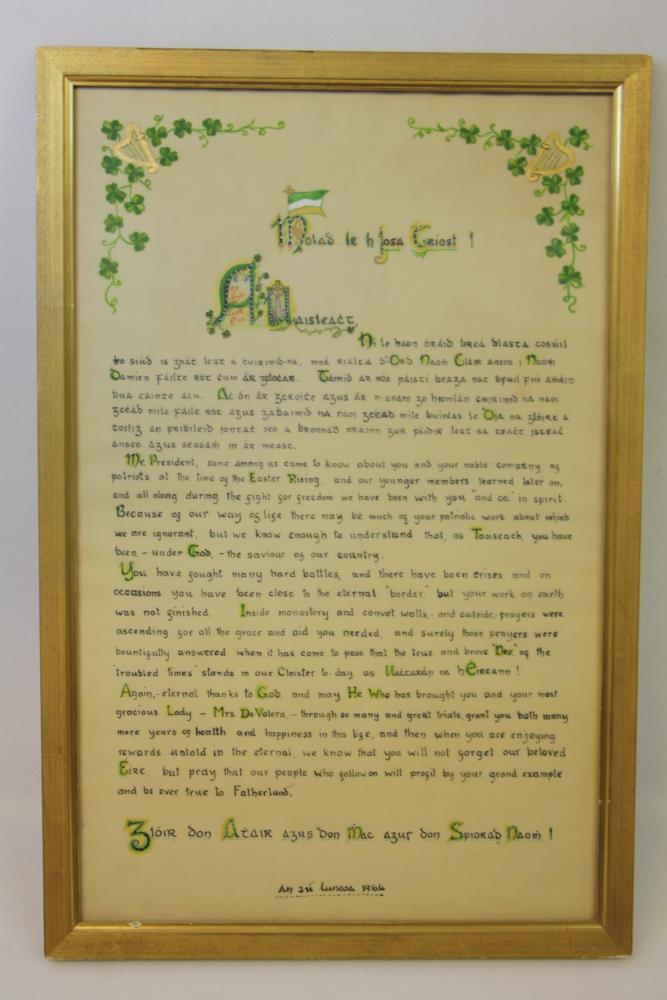 Molaḋ le h Íosa Críost !
A Uaisleaċt,
Ní le haon óráid breá blasta cosúil
ho siúd is gnáṫ leat a ċuirimíd-na, mná rialta d'Ord Naoṁ Clair anseo i Naoṁ
Damien fáilte róṫ ċum ár gclóċar. Táimíd ar nós páistí beaga naċ ḃfuil fiú aṁáin
bua cainte acu. Aċ ón ár gcroíṫe agus ár n-anam go hiomlán cuirimíd na naoi
gcéad míle fáilte róṫ agus gaḃaimíd na naoi gcéad míle buíoċas le Dia na glóire a
ṫoiliġ an pribiléid iontaċ seo a bronnaḋ orainn gur féidir leat-sa teaċt isteaċ
anseo agus seasaṁ in ár measc.
Mr. President, some among us came to know about you and your noble company of
patriots at the time of the Easter Rising, and our younger members learned later on,
and all along during the fight for freedom we have been with you "and co." in spirit.
Because of our way of life there may be much of your patriotic work about which
we are ignorant, but we know enough to understand that, as Taoiseach, you have
been, - under God, - the saviour of our country.
You have fought many hard battles, and there have been crises, and on
occasions you have been close to the eternal "border," but your work on earth
was not finished. Inside monastery and convet walls, - and outside, - prayers were
ascending for all the grace and aid you needed, and surely those prayers were
bountifully answered when it has come to pass that the true and brave "Dev." of the
"troubled times" stands in our Cloister to-day as Uaċtarán na hÉireann !
Again, - eternal thanks to God, and may He Who has brought you and your most
gracious Lady - Mrs. De Valera, - through so many and great trials, grant you both many
more years of health and happiness in this life, and then when you are enjoying
rewards untold in the eternal, we know that you will not forget our beloved
Éire, but pray that our people who follow on will profit by your grand example
and be ever true to Fatherland.
Glóir don Áṫair agus don Mac agus don Spiorad Naoṁ !
An 2ú Lúnasa 1964